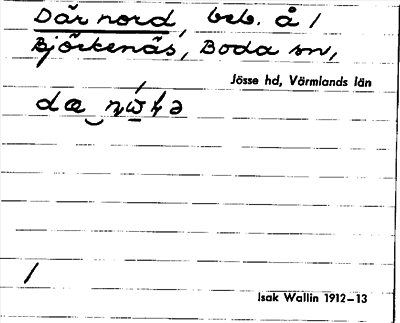 Där nord, beb. å 1
Björkenäs, Boda sn,
Jösse hd, Värmlands län
1
Isak Wallin 1912–13